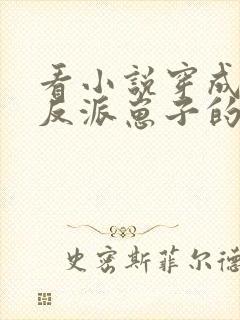 看小说穿成
反派崽子的
史密斯菲尔德